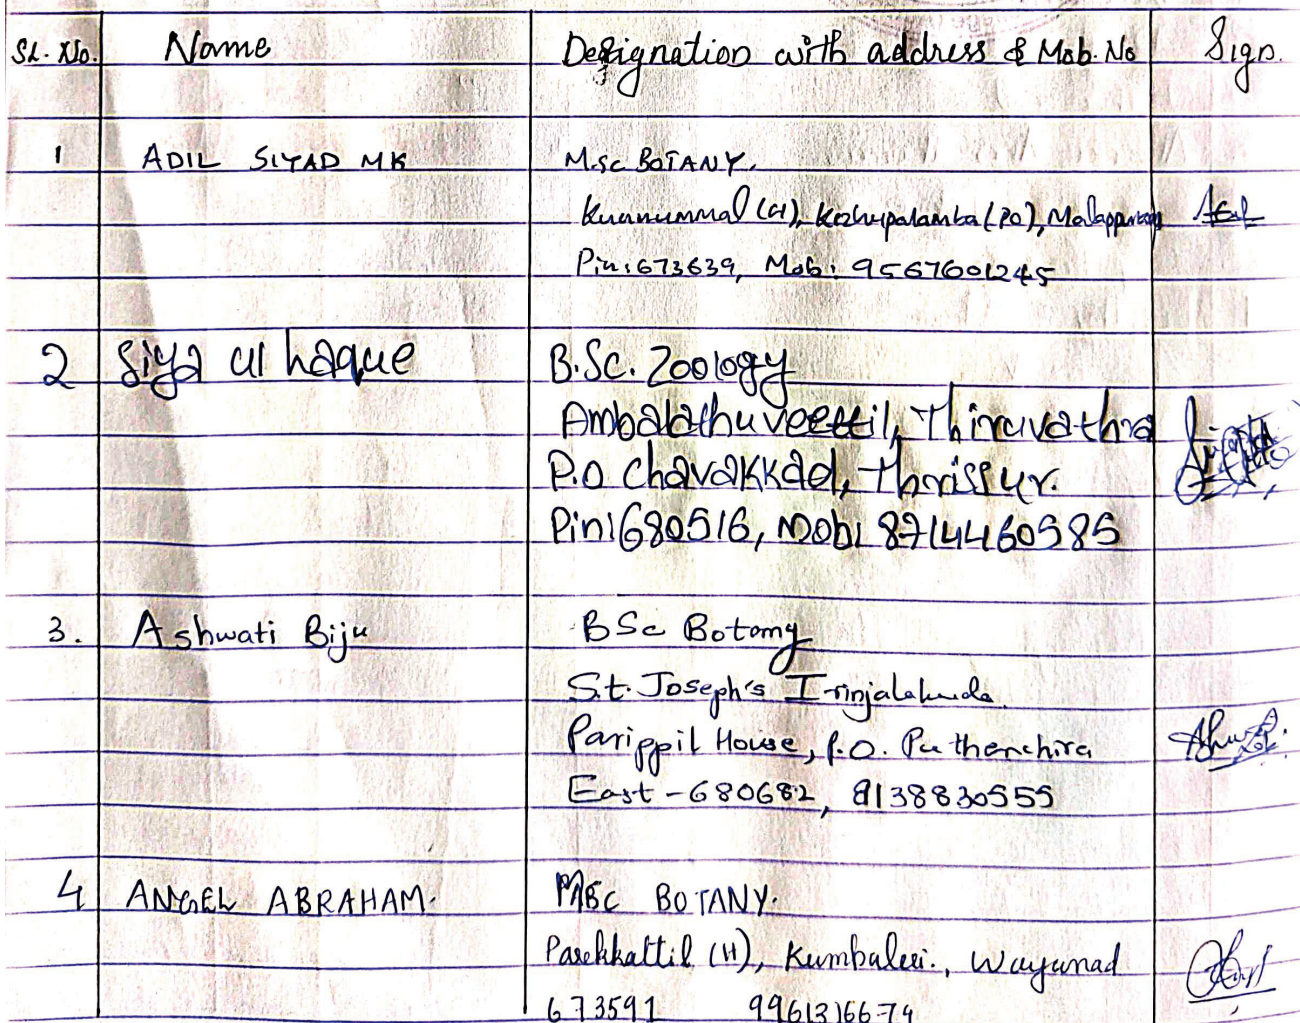 Sl. No. Name Designation with address & Mob. No Sign.
1 ADIL SIYAD MK M.Sc BOTANY.
Kunnummal (H), Kozhupalamba (PO), Malappuram
Pin: 673639, Mob: 9567601245
2 Siya ul haque B.Sc. Zoology
Ambalathuveettil, Thiruvathra
P.O Chavakkad, Thrissur.
Pin: 680516, Mob: 8714460585
3. Ashwati Biju BSc Botany
S.t. Joseph's Irinjalakuda
Parippil House, P.O. Puthenchira
East - 680682, 8138830555
4 ANGEL ABRAHAM. MSC BOTANY.
Parekkattil (H), Kumbaleri., Wayanad
673591 9961316674